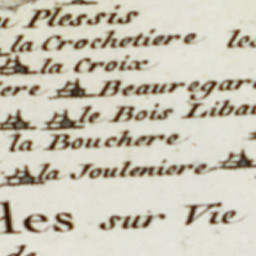 u Plessis
la Crochetiere les
la Croix
iere Beauregar
le Bois Libau
la Bouchere
la Jouleniere
les sur Vie
de